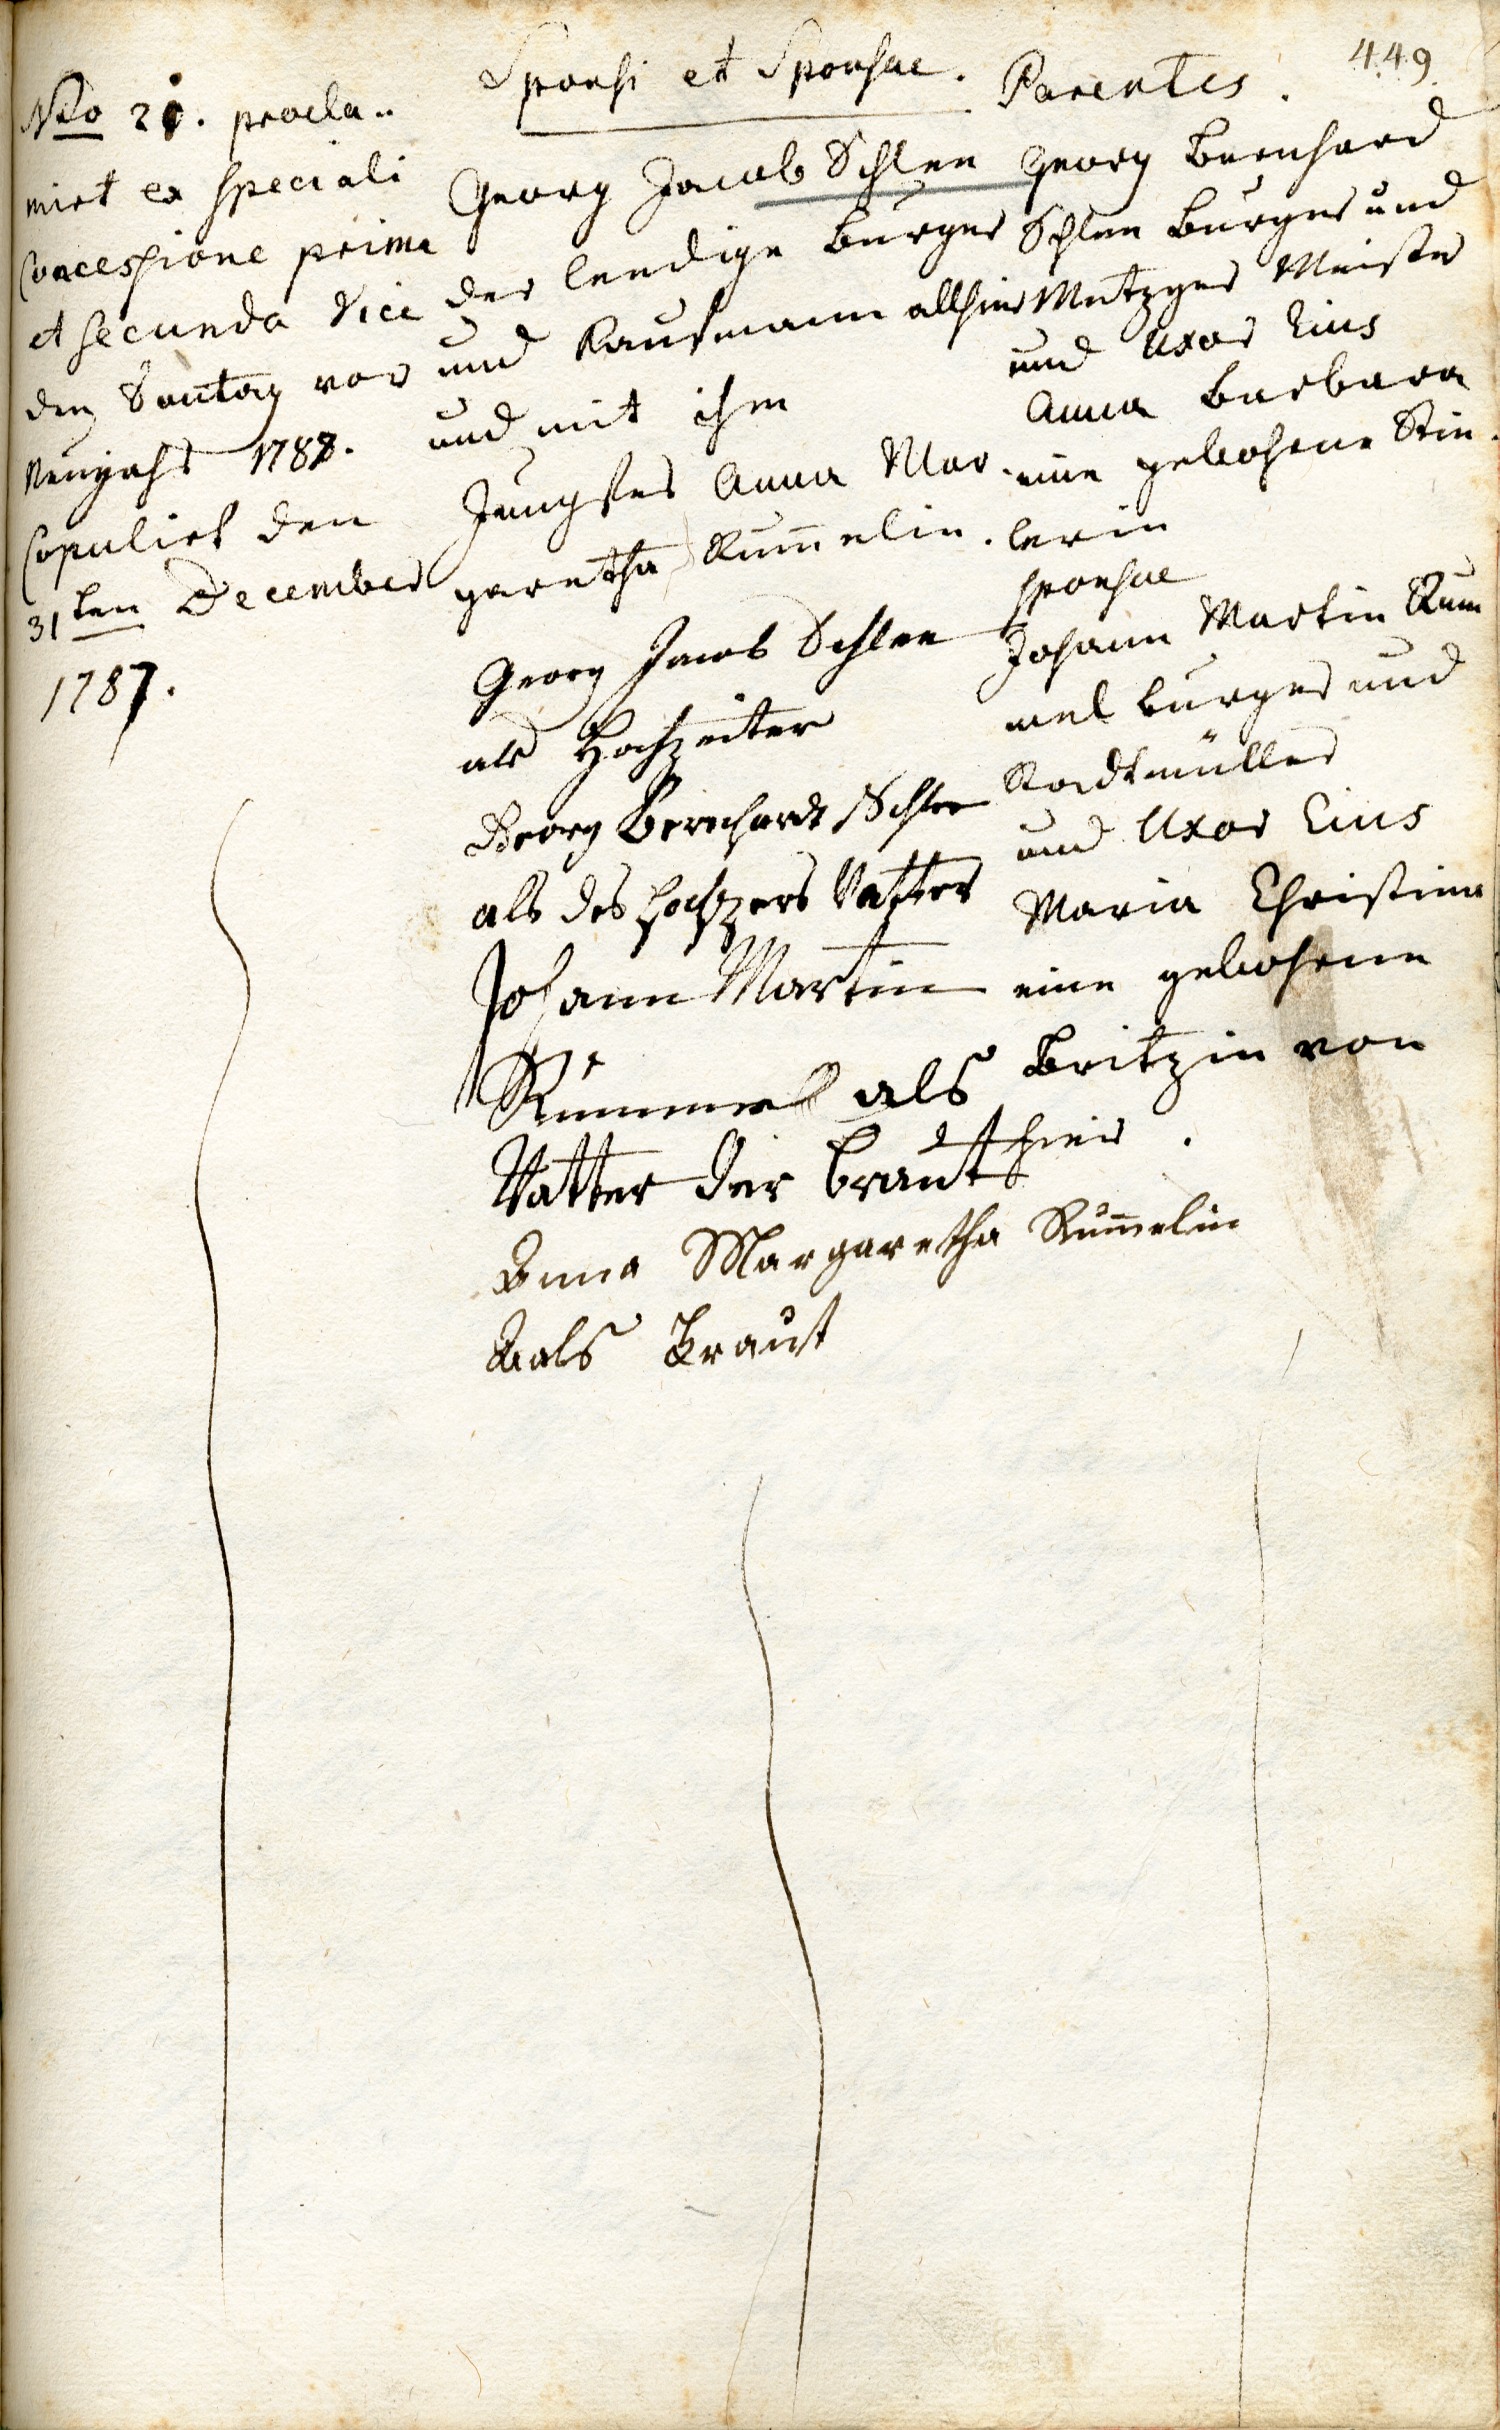 449
Sponsi et Sponsae.
Parentes.
Nro 21. procla..
mirt ex speciali
Concessione prima
et secunda Vice
den Sontag vor
Neujahr 1788.
Copulirt den
31ten December
1787.
Georg Jacob Schlee
der leedige Burger
und Kaufmann allhier
und mit ihm
Jungfer Anna Mar.
garetha Rum̅elin.
Georg Jacob Schlee
als Hochzeiter
Georg Bernhardt Schlee
als des Hochzers Vatter
Johann Martin
Rummel als
Vatter der Braut
Anna Margaretha Rum̅elin
Als Braut
Georg Bernhard
Schlee Burger und
Metzger Meister
und Uxor Eius
Anna Barbara
eine gebohrne Stin.
lerin
sponsae
Johann Martin Rum
mel burger und
Stadtmüller
und Uxor Eius
Maria Christina
eine gebohrene
Britzin von
hier.